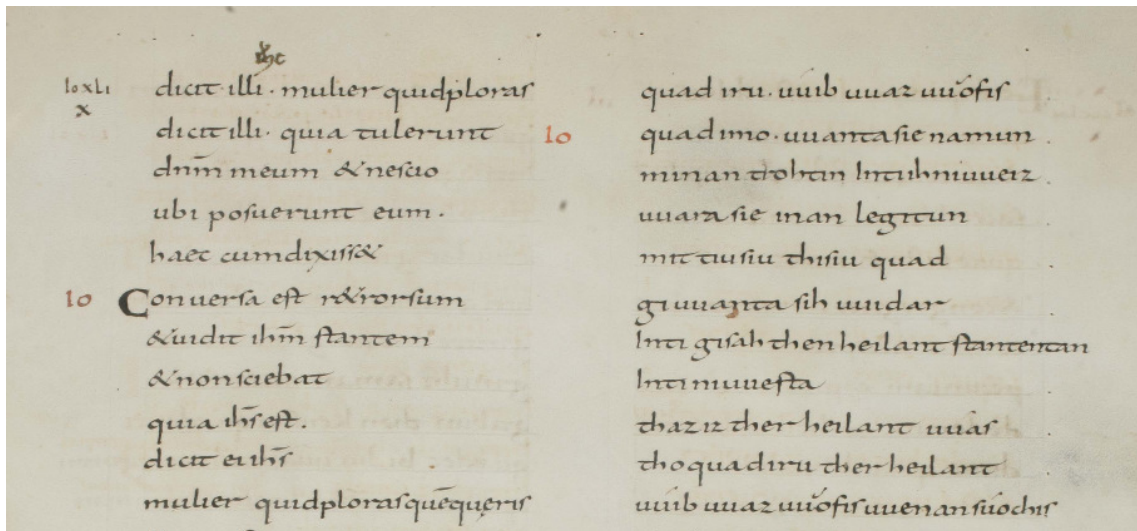 ihc
dicit illi · mulier quidploras
dicit illi · quia tulerunt
dnm̄ meum &nescio
ubi posuerunt eum ·
haec cumdixiss&
Conversa est r&rorsum
&uidit ihm̄ stantem
&nonsciebat
quia ihs̄ est .
dicit ei ihs̄
mulier quidplorasquēqueris
Io xLi
x
Io
quad iru · uuib uuaz uuofis
Io
quad imo · uuantasie namun
minan trohtin Intiihniuueiz
uuara sie inan legitun
mit tiu siu thisiu quad
giuuanta sih uuidar
Inti gisah then heilant stantentan
Inti niuuesta
thaz iz ther heilant uuas
tho quad iru ther heilant
uuib uuaz uuofis uuenan suochis